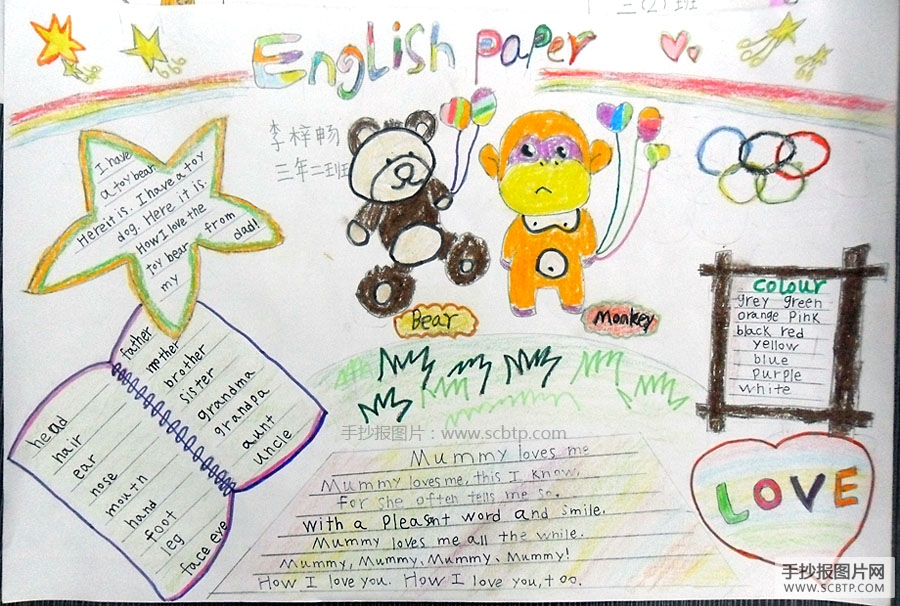 三(2)班
English paper
李梓畅
三年二班
I have
a toy bear.
Here it is. I have a toy
dog. Here it is.
How I love the
toy bear from
my dad!
Bear
Monkey
colour
grey green
orange Pink
black red
yellow
blue
purple
white
father
mother
brother
sister
grandma
grandpa
aunt
uncle
head
hair
ear
nose
mouth
hand
foot
leg
face eye
手抄报图片：www.scbtp.com
Mummy loves me
Mummy loves me, this I know.
For she often tells me so.
with a pleasant word and smile.
Mummy loves me all the while.
Mummy, Mummy, Mummy, Mummy!
How I love you. How I love you, too.
LOVE
手抄报图片网
WWW.SCBTP.COM